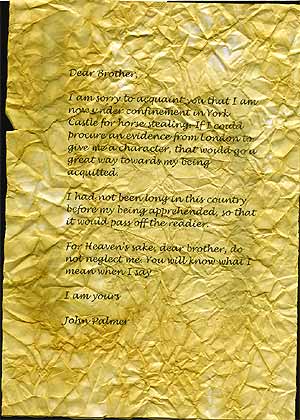 Dear Brother,
I am sorry to acquaint you that I am
now under confinement in York
Castle for horse stealing. If I could
procure an evidence from London to
give me a character, that would go a
great way towards my being
acquitted.
I had not been long in this country
before my being apprehended, so that
it would pass off the readier.
For Heaven's sake, dear brother, do
not neglect me. You will know what I
mean when I say
I am yours
John Palmer